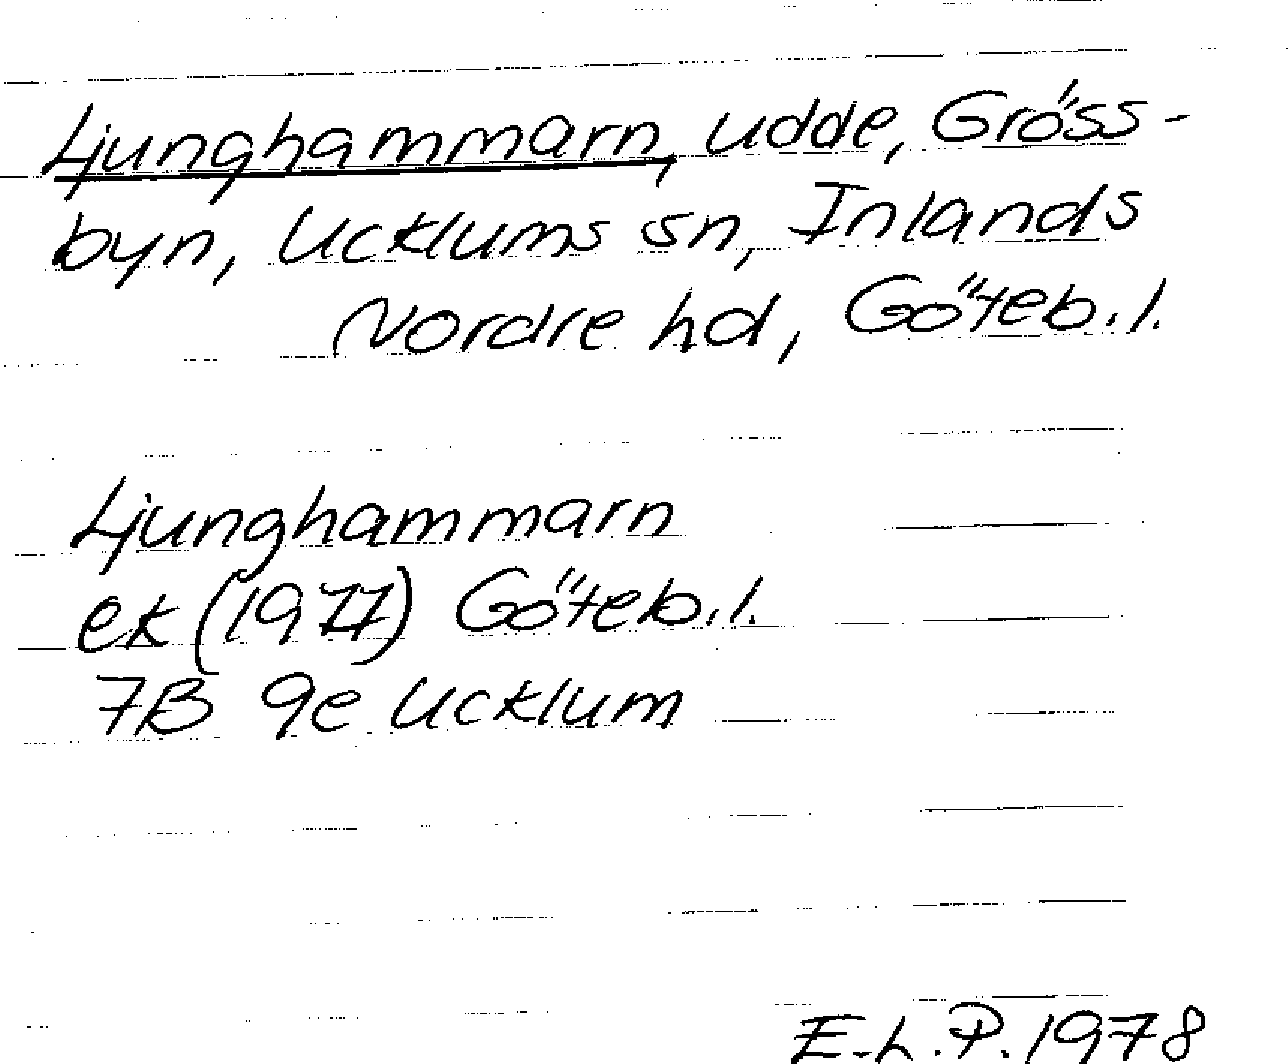 Ljunghammarn, udde, Gröss-
byn, Ucklums sn, Inlands
Nordre hd, Göteb.l.
Ljunghammarn
ek (1977) Göteb.l.
7B 9e Ucklum
E.L.P. 1978